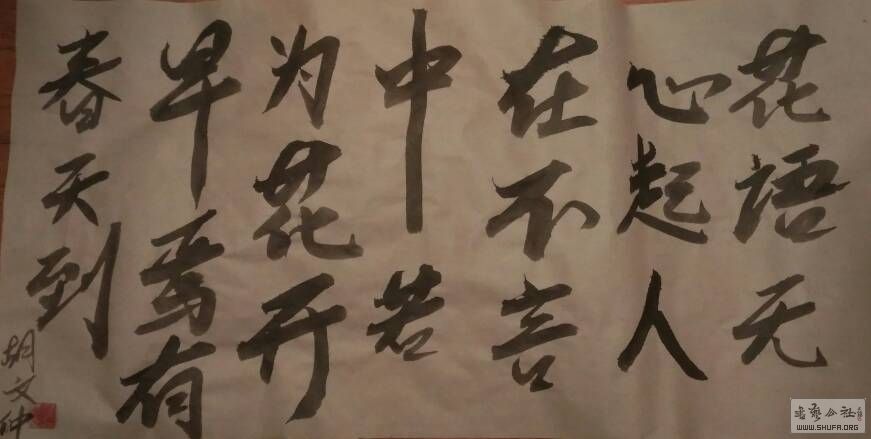 花語无
心起人
在不言
中若
为花开
早焉有
春天到
胡文仲
書藝公社
WWW.SHUFA.ORG